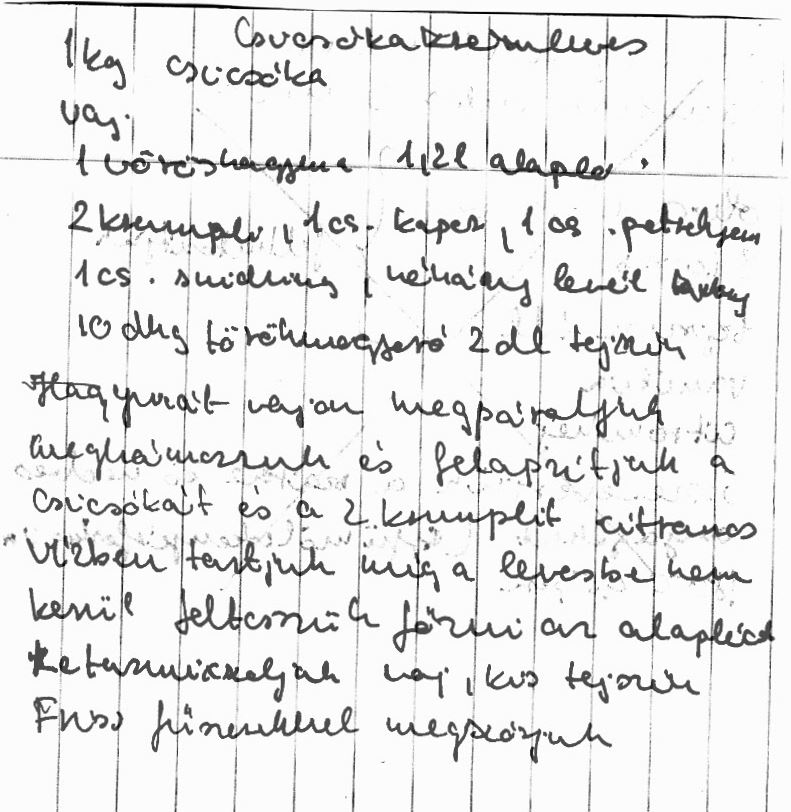 Csicsókakrémleves
1kg csicsóka
vaj.
1 vöröshagyma 1,2l alaplé.
2 krumpli, 1 cs. kapor, 1 cs. petrezselyem
1 cs. snidling, néhány levél
10 dkg tökmag 2 dl tejszín
Hagymát vajon megpároljuk
meghámozzuk és felaprítjuk a
csicsókát és a 2 krumplit citromos
vízben tartjuk míg a levesbe nem
kerül feltesszük főzni az alaplével
Leturmixoljuk vaj, kis tejszín
Friss fűszerekkel megszórjuk